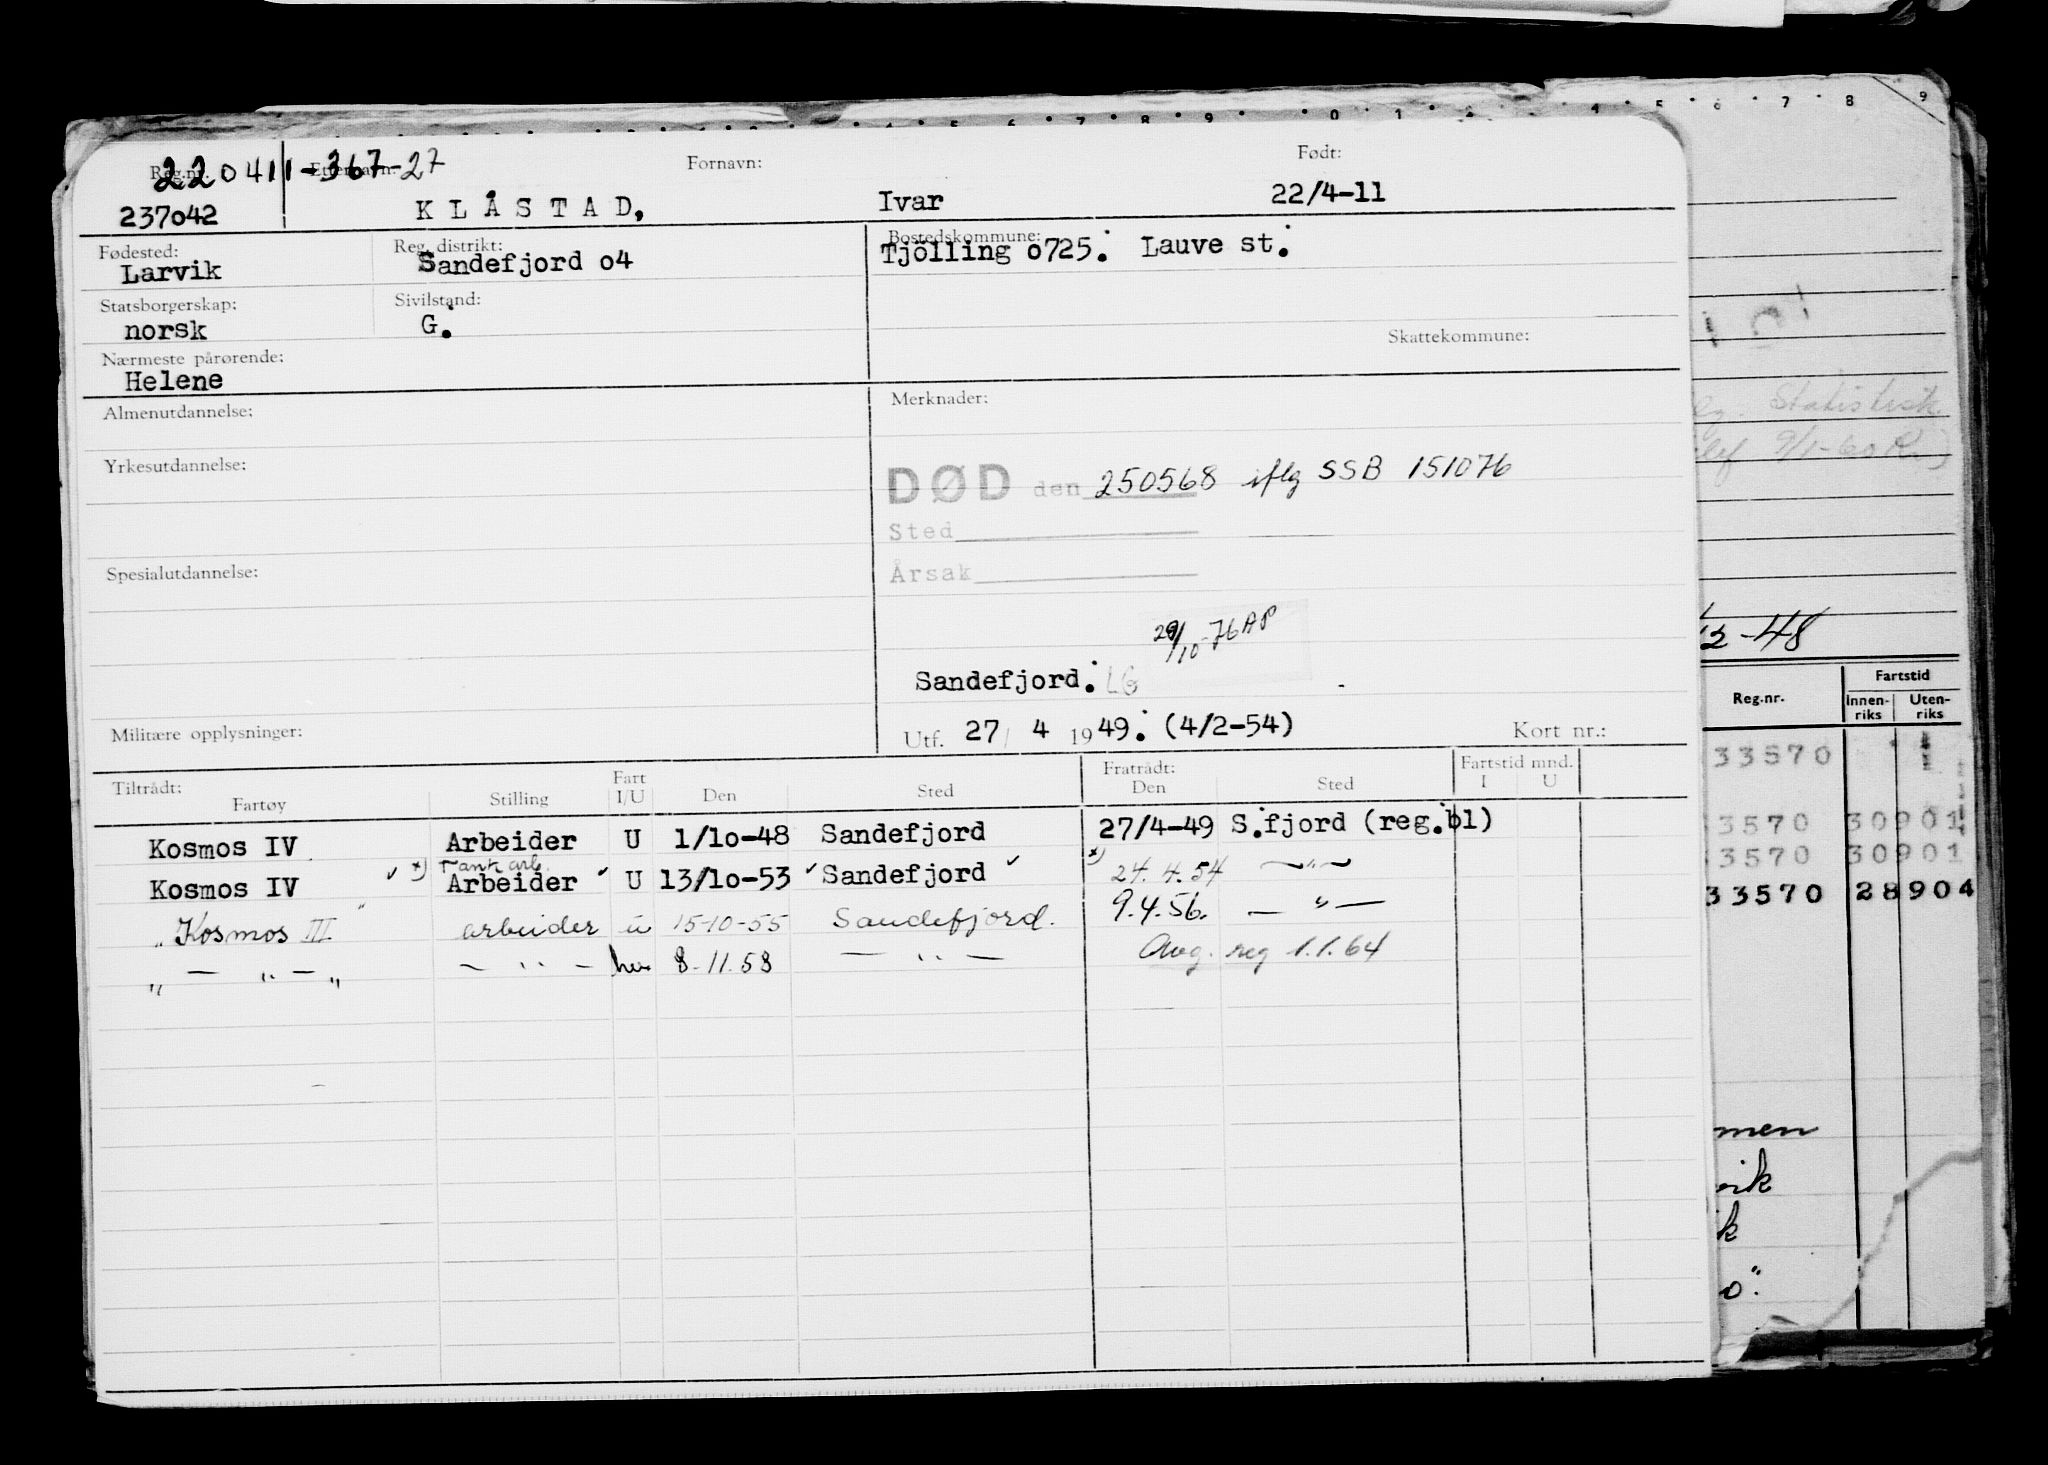 220411-367-27
Reg.nr. Etternavn: Fornavn: Født:
237042 KLÅSTAD, Ivar 22/4-11
Fødested: Reg. distrikt: Bostedskommune:
Larvik Sandefjord o4 Tjölling o725. Lauve st.
Statsborgerskap: Sivilstand:
norsk G.
Nærmeste pårørende: Skattekommune:
Helene
Almenutdannelse: Merknader:
Yrkesutdannelse:
DØD den 250568 iflg SSB 151076
Sted
Årsak
Spesialutdannelse:
29/10-76 AP
Sandefjord. LG
Militære opplysninger: Utf. 27/ 4 1949. (4/2-54) Kort nr.:
Tiltrådt: Fratrådt: Fartstid mnd.
Fartøy Stilling Fart I/U Den Sted Den Sted I U
Kosmos IV Arbeider U 1/1o-48 Sandefjord 27/4-49 S.fjord (reg.bl)
Kosmos IV *) Tank arb. Arbeider U 13/1o-53 Sandefjord *) 24.4.54 —"—
"Kosmos III" arbeider u 15-10-55 Sandefjord. 9.4.56. —"—
" — " — " — " — 8.11.58 — " — Avg. reg 1.1.64
4 5 6 7 8 9 0 1 2 4 5 6 7 8 9
Statistisk
9/1-60
12-48
Reg.nr. Fartstid
Innen-riks Uten-riks
33570
3570 30901
3570 30901
33570 28904
men
vik
k
o".